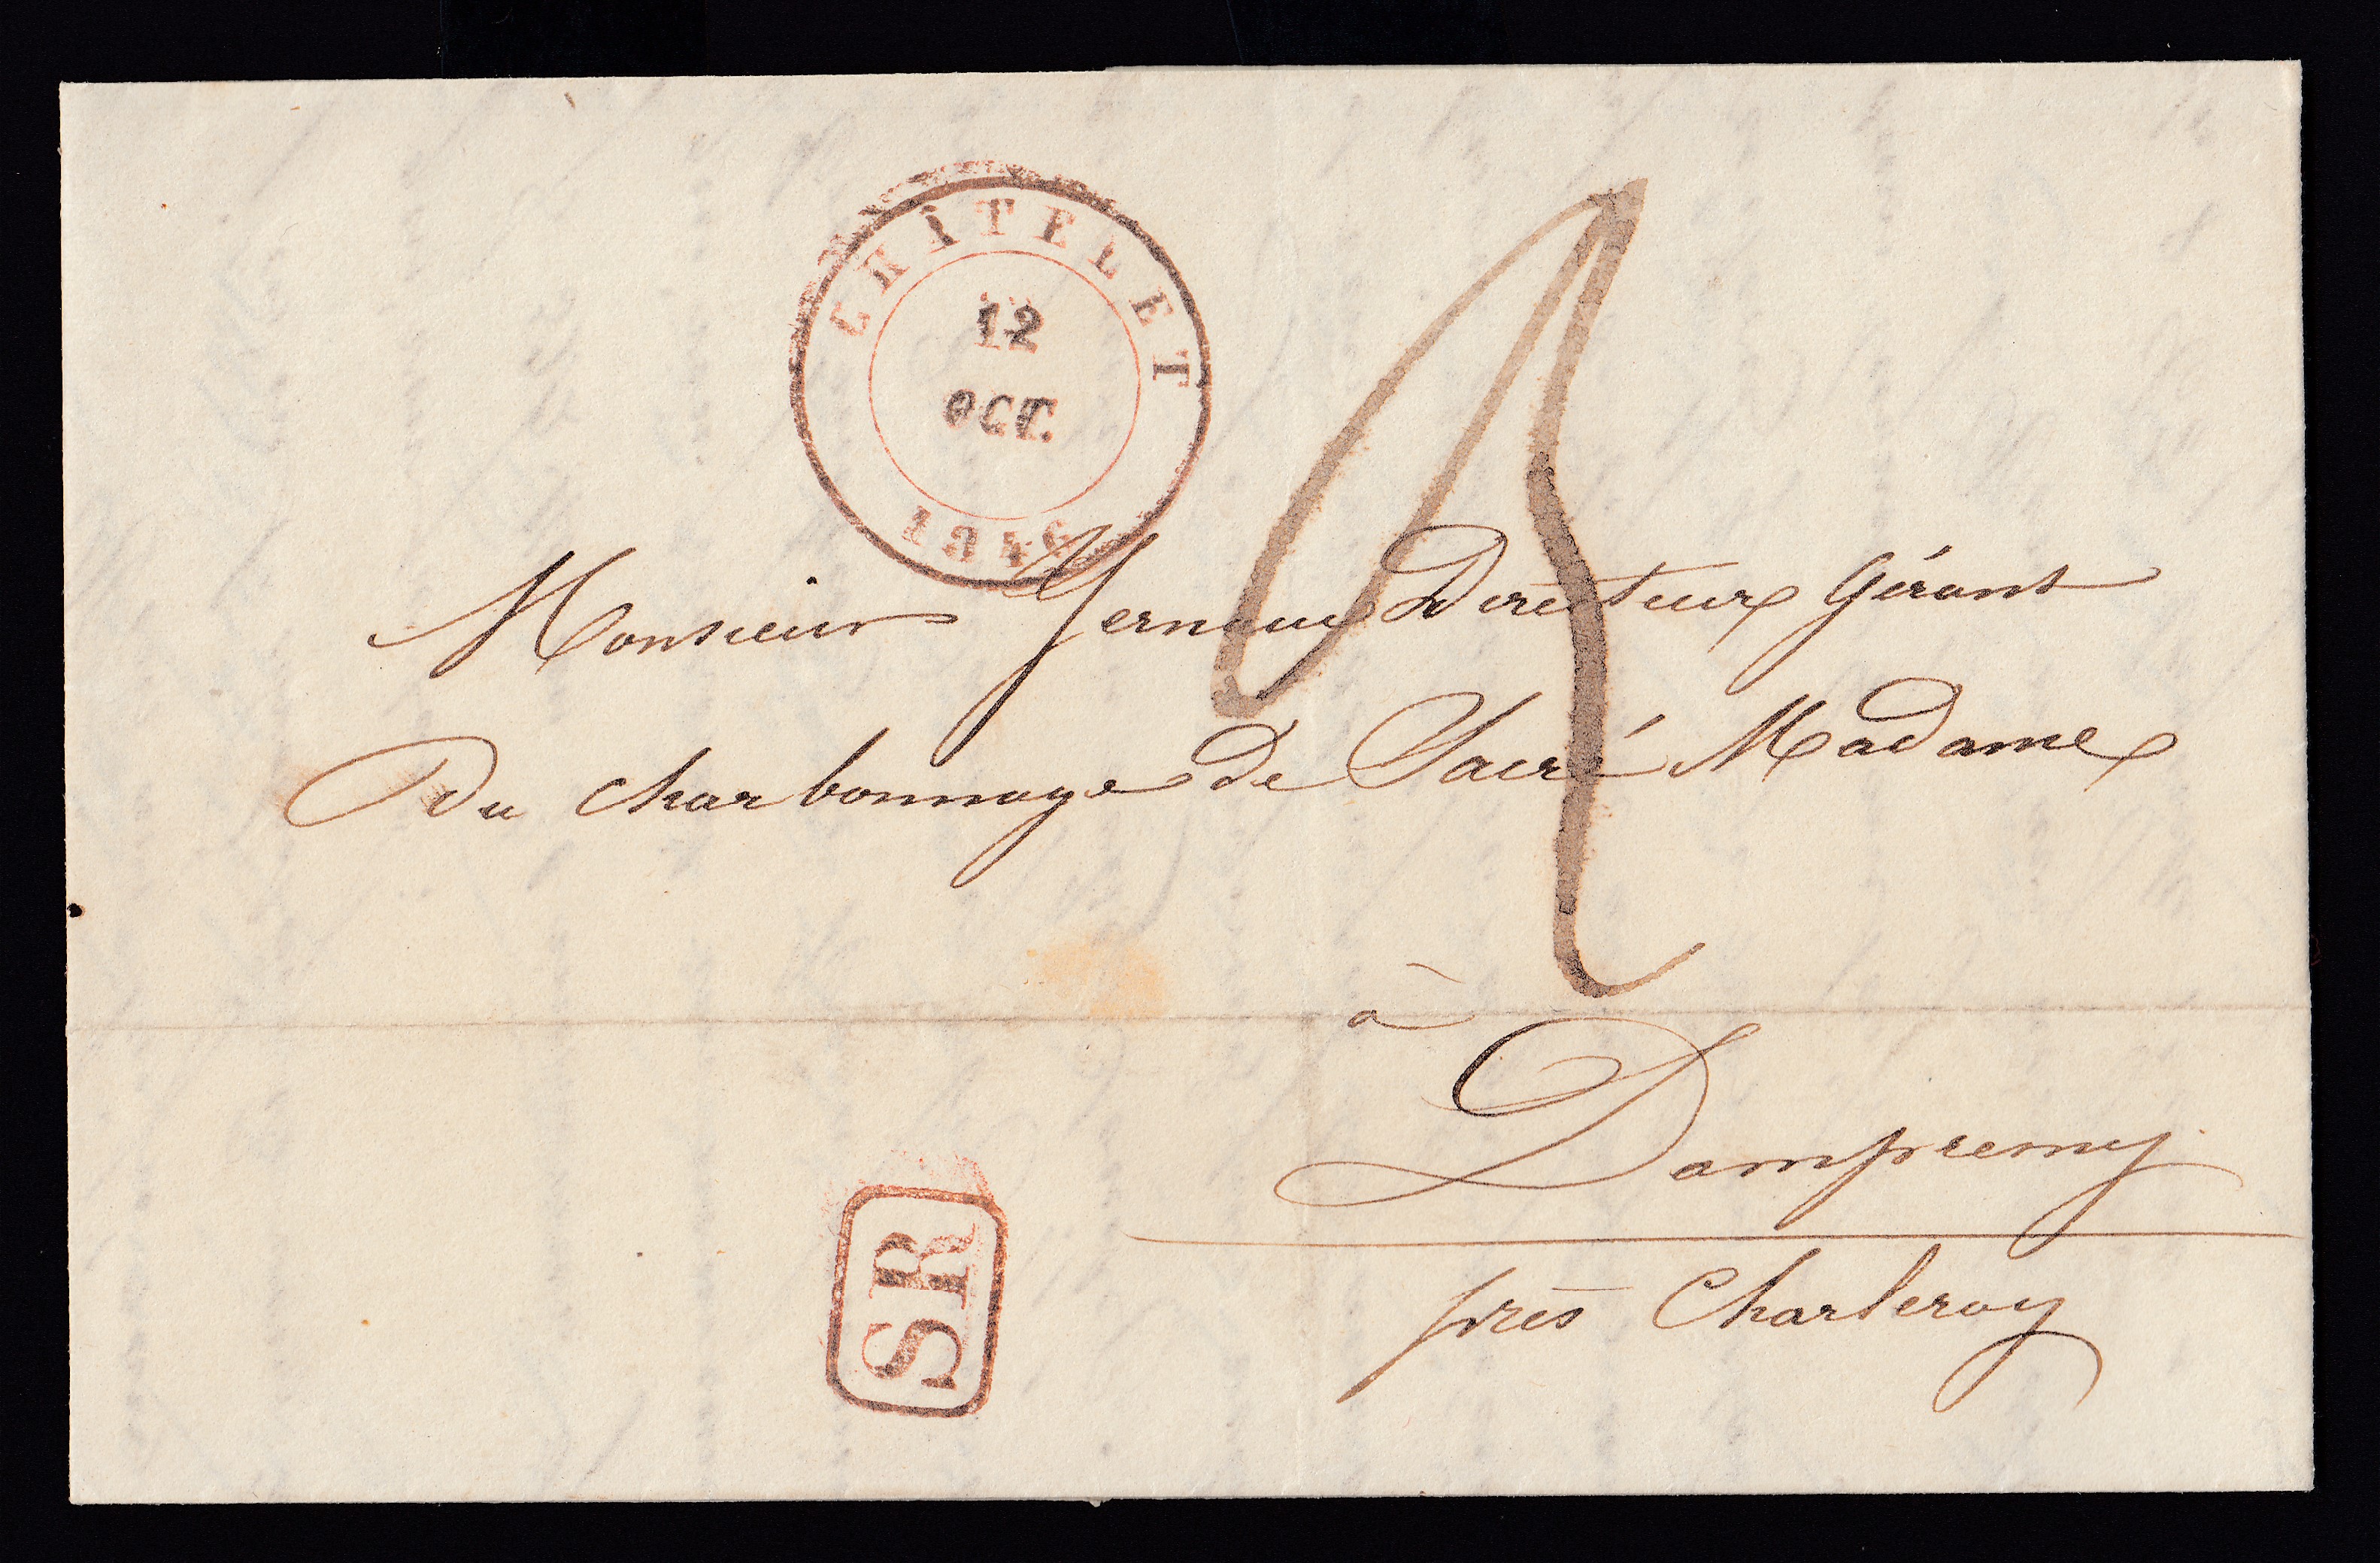 CHÂTELET
12
OCT.
1846
Monsieur Directeur Gérant
Du Charbonnage De Sacré Madame
à
Dampremy
près Charleroy
SR